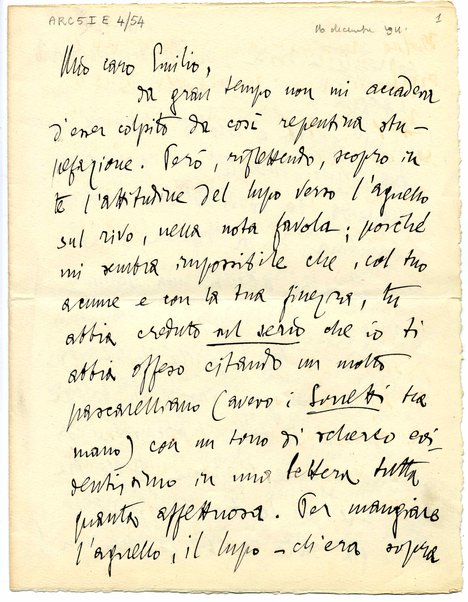 ARC5 I E 4/54
16 dicembre 1911.
1
Mio caro Emilio,
da gran tempo non mi accadeva
d'esser colpito da così repentina stu-
pefazione. Però, riflettendo, scopro in
te l'attitudine del lupo verso l'agnello
sul rivo, nella nota favola; perché
mi sembra impossibile che, col tuo
acume e con la tua finezza, tu
abbia creduto sul serio che io ti
abbia offeso citando un motto
pascarelliano (avevo i Sonetti tra
mano) con un tono di scherzo evi-
dentissimo in una lettera tutta
quanta affettuosa. Per mangiare
l'agnello, il lupo – ch'era sopra